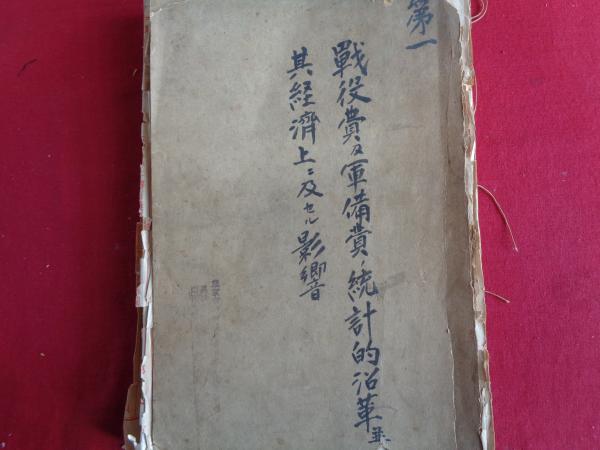 第一
戰役費及軍備費ノ統計的沿革並
其経濟上ニ及セル影響